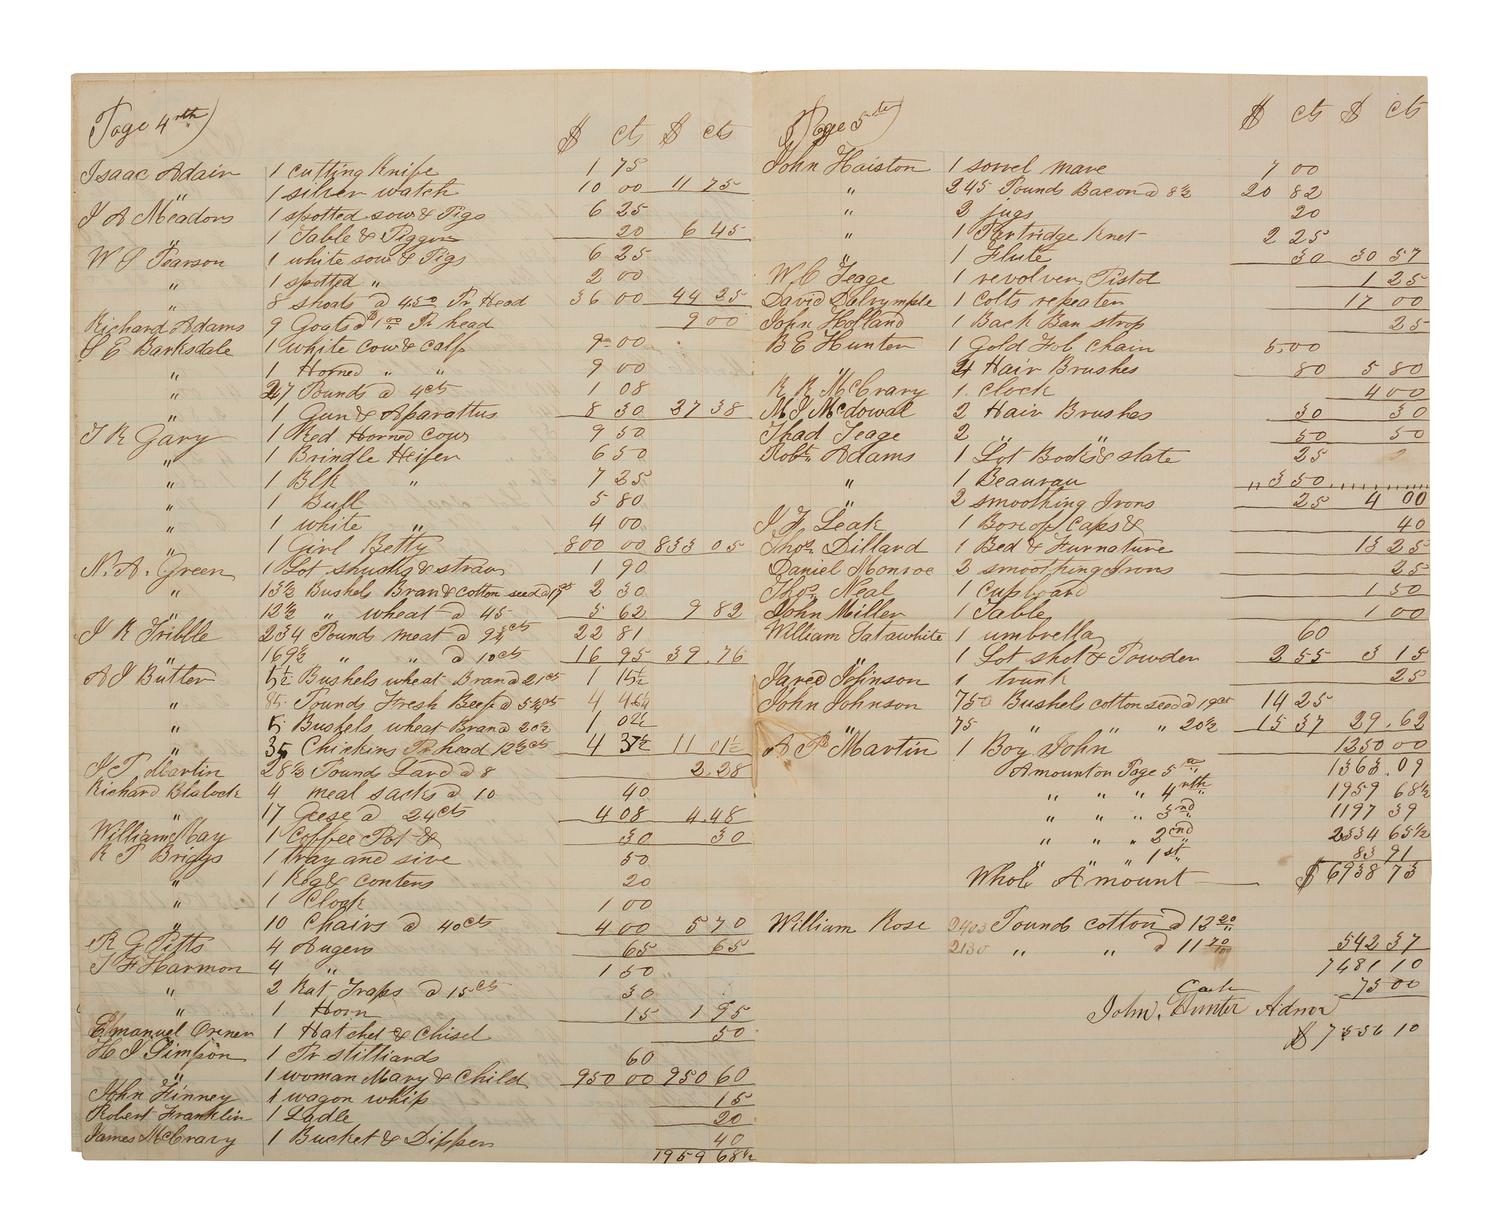 Page 4rth)
$ cts $ cts
Isaac Adair 1 cutting Knife 1 75
" 1 silver watch 10 00 11 75
J A Meadors 1 spotted sow & Pigs 6 25
" 1 Table & Piggin 20 6 45
W S Pearson 1 white sow & Pigs 6 25
" 1 spotted " 2 00
" 8 shoats @ 4.50 Pr Head 36 00 44 25
Richard Adams 9 Goats @ $1.00 Pr head 9 00
S E Barksdale 1 white cow & calf 9 00
" 1 Horned " " 9 00
" 27 Pounds @ 4cts 1 08
" 1 Gun & Aparattus 8 30 27 38
T R Gary 1 Red Horned Cow 9 50
" 1 Brindle Heifer 6 50
" 1 Blk " 7 25
" 1 Bull 5 80
" 1 white " 4 00
" 1 Girl Betty 800 00 833 05
N. A. Green 1 Lot shucks & straw 1 90
" 13½ Bushels Bran & cotton seed @ 2 30
" 12½ " wheat @ 45 5 62 9 82
J R Tribble 234 Pounds meat @ 9¾cts 22 81
" 169½ " " @ 10cts 16 95 39.76
A J Butler 5½ Bushels wheat Bran @ 21cts 1 15½
" 85 Pounds Fresh Beef @ 5¼cts 4 46¼
" 5 Bushels wheat Bran @ 20½ 1 02½
" 35 Chickins Pr head 12½cts 4 37½ 11 01½
J P Martin 28½ Pound Lard @ 8 2.28
Richard Blalock 4 meal sacks @ 10 40
" 17 Geese @ 24cts 4 08 4.48
William May 1 Coffee Pot & 30 30
R P Briggs 1 tray and sive 50
" 1 Keg & contens 20
" 1 Cloak 1 00
" 10 Chairs @ 40cts 4 00 5 70
R G Pitts 4 Augers 65 65
T F Harmon 4 " 1 50
" 2 Rat Traps @ 15cts 30
" 1 Horn 15 1 95
Emanuel 1 Hatchet & Chisel 50
H J Simpson 1 Pr stilliards 60
" 1 woman Mary & Child 950 00 950 60
John Finney 1 wagon whip 15
Robert Franklin 1 Ladle 20
James McCrary 1 Bucket & Dipper 40
1959 68½
Page 5th)
$ cts $ cts
John Haiston 1 sorrel mare 7 00
" 245 Pound Bacon @ 8½ 20 82
" 2 jugs 20
" 1 Partridge Knet 2 25
" 1 Flute 30 30 57
W. C Teage 1 revolver Pistol 1 25
David Dalrymple 1 Colts repeater 17 00
John Holland 1 Back Ban strop 25
B E Hunter 1 Gold Fob Chain 5.00
" 4 Hair Brushes 80 5 80
R R McCrary 1 clock 4 00
M J Mcdowall 2 Hair Brushes 30 30
Thad Teage 2 " " 50 50
Robt. Adams 1 Lot Books & slate 25
" 1 Beaurau 3 50
" 2 smoothing Irons 25 4 00
J. F. Leak 1 Box of Caps & 40
Thos. Dillard 1 Bed & Furnature 13 25
Daniel Monroe 2 smoothing Irons 25
Thos. Neal 1 cupboard 1 50
John Miller 1 Table 1 00
William Tatawhite 1 umbrella 60
" 1 Lot shot & Powder 2 55 3 15
Jared Johnson 1 trunk 25
John Johnson 75 Bushels cotton seed @ 19cts 14 25
" 75 " " " 20½ 15 37 29.62
A P Martin 1 Boy John 1250 00
Amount on Page 5th 1363.09
" " " 4rth 1959 68½
" " " 3rd 1197 39
" " " 2nd 2334 65½
" " " 1st 83 91
Whole Amount $6938 73
William Rose 2403 Pounds cotton @ 12 20
2130 " " @ 11 70/100 542 37
7481 10
Cash 75 00
John. Hunter Admor
$7556 10